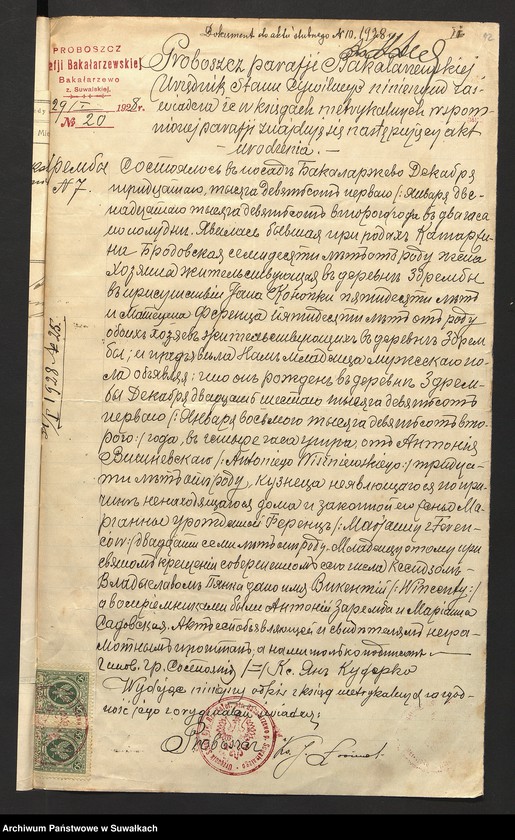 Dokument do aktu ślubnego N 10. 1928 r.
92
PROBOSZCZ
Parafji Bakałarzewskiej
Bakałarzewo
z. Suwalskiej,
29/I 1928 r.
№ 20
Proboszcz parafji Bakałarzewskiej
Urzędnik Stanu Cywilnego niniejszem zaś-
wiadcza że w księgach metrykalnych wspom-
nionej parafji znajduje się następujący akt
urodzenia. —
Здрембы
N 7.
Состоялось въ посадѣ Бакаларжево Декабря
тридцатаго, тысяча девятьсотъ перваго /: Января две-
надцатаго тысяча девятьсотъ второго года въ два часа
по полудни. Явилась бывшая при родахъ Катаржи-
на Бродовская семидесяти лѣтъ отъ роду жена
хозяина жительствующая въ деревнѣ Здрембы
въ присутствіи Яна Конопки пятидесяти лѣтъ
и Матеуша Ференца пятидесяти лѣтъ отъ роду
обоихъ хозяевъ жительствующихъ въ деревнѣ Здрем-
бы, и предъявила Намъ младенца мужескаго по-
ла объявляя; что онъ рожденъ въ деревнѣ Здрем-
бы Декабря двадцать шестого тысяча девятьсотъ
перваго /: Января восьмого тысяча девятьсотъ вто-
рого :/ года, въ четыре часа утра, отъ Антонія
Висневскаго /: Antoniego Wiśniewskiego :/ тридца-
ти лѣтъ отъ роду, кузнеца неявляющагося по при-
чинѣ ненаходящагося дома и законной его жены Ма-
ріанны урожденной Ференцъ /: Marjanny z Feren-
ców :/ двадцати семи лѣтъ отъ роду. Младенцу этому при
святомъ крещеніи совершенномъ сего числа Ксендзомъ
Владыславомъ дано имя Викентій /: Wincenty :/
а воспріемниками были Антоній Заремба и Маріанна
Садовская. Актъ сей объявляющей и свидѣтелямъ негра-
мотнымъ прочитанъ, а нами только подписанъ —
/—/ Кс. Янъ
Wydając niniejszy odpis z ksiąg metrykalnych zgod-
ność jego z oryginałem świadczę;
Proboszcz
Ks. J.
Archiwum Państwowe w Suwałkach